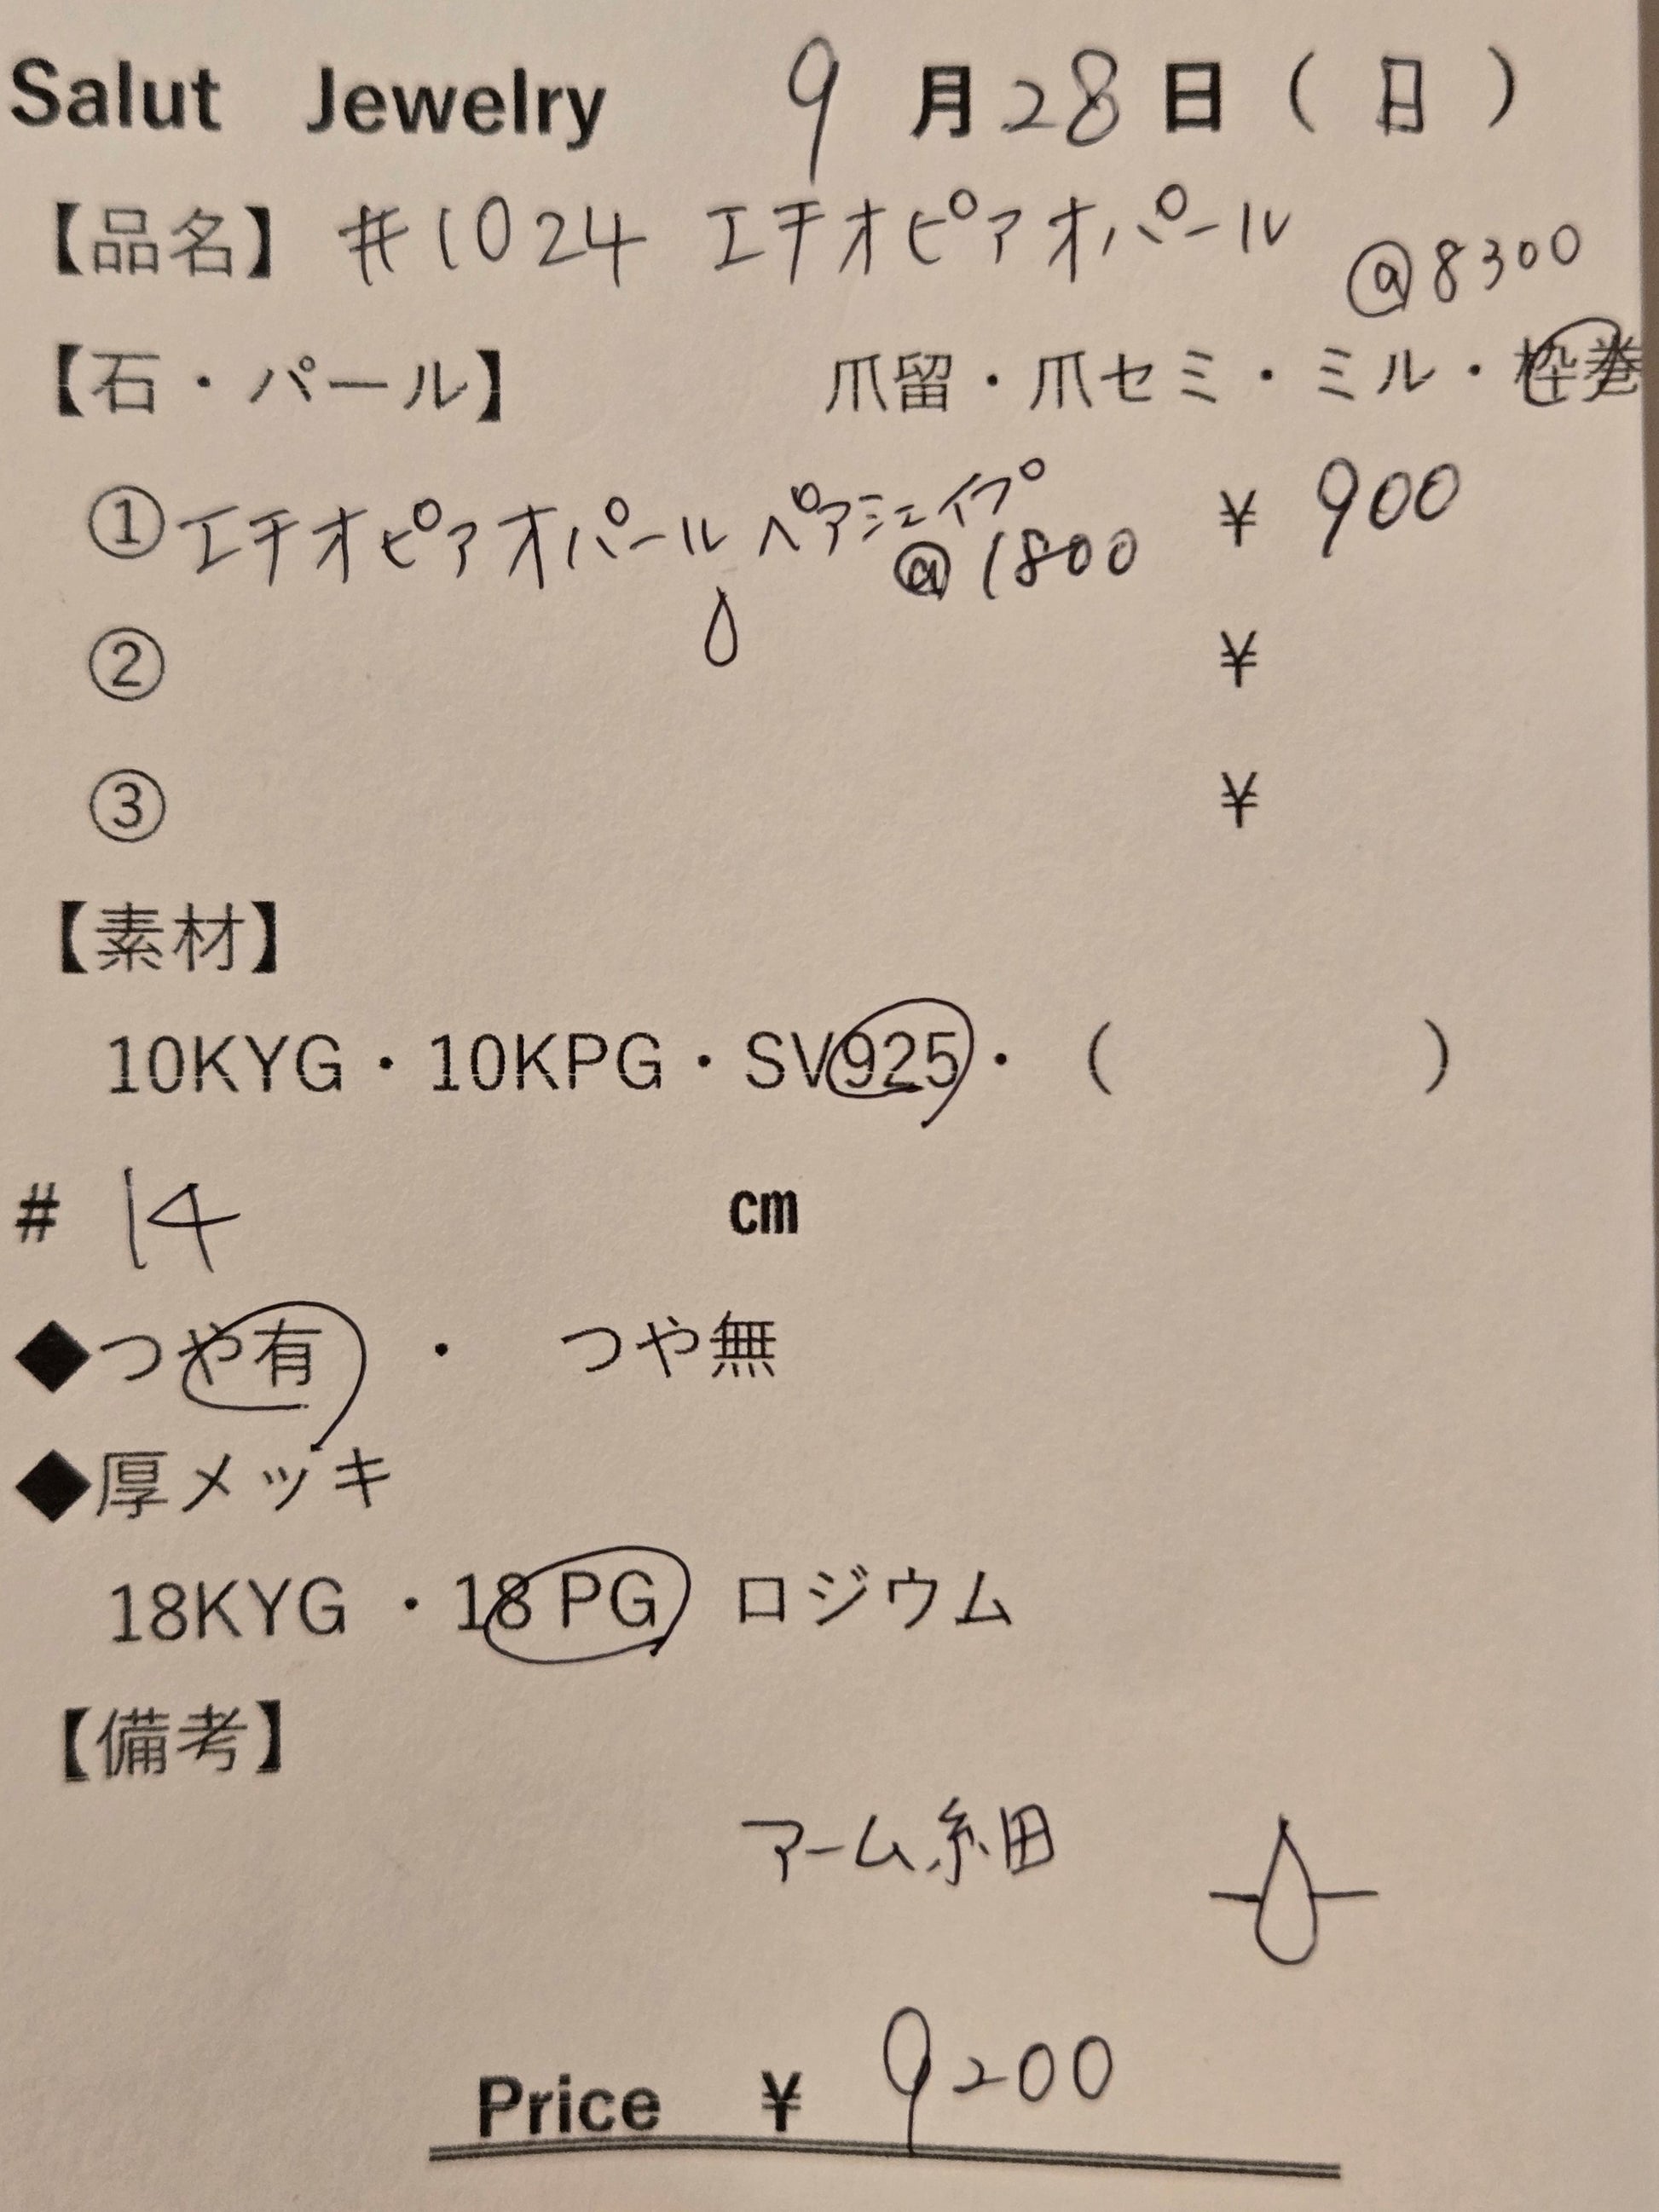 Salut Jewelry 9月28日(日)
【品名】#1024 エチオピアオパール @8300
【石・パール】 爪留・爪セミ・ミル・枠巻
①エチオピアオパール ペアシェイプ @1800 ¥900
② ¥
③ ¥
【素材】
10KYG・10KPG・SV925・( )
# 14 cm
◆つや有 ・ つや無
◆厚メッキ
18KYG ・18 PG ロジウム
【備考】
アーム細
Price ¥ 9200